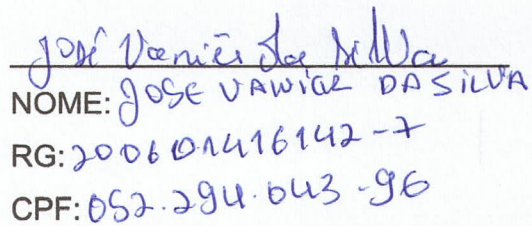 José Vanier da Silva
NOME: JOSE VANIER DA SILVA
RG: 200601416142-7
CPF: 052.294.043-96